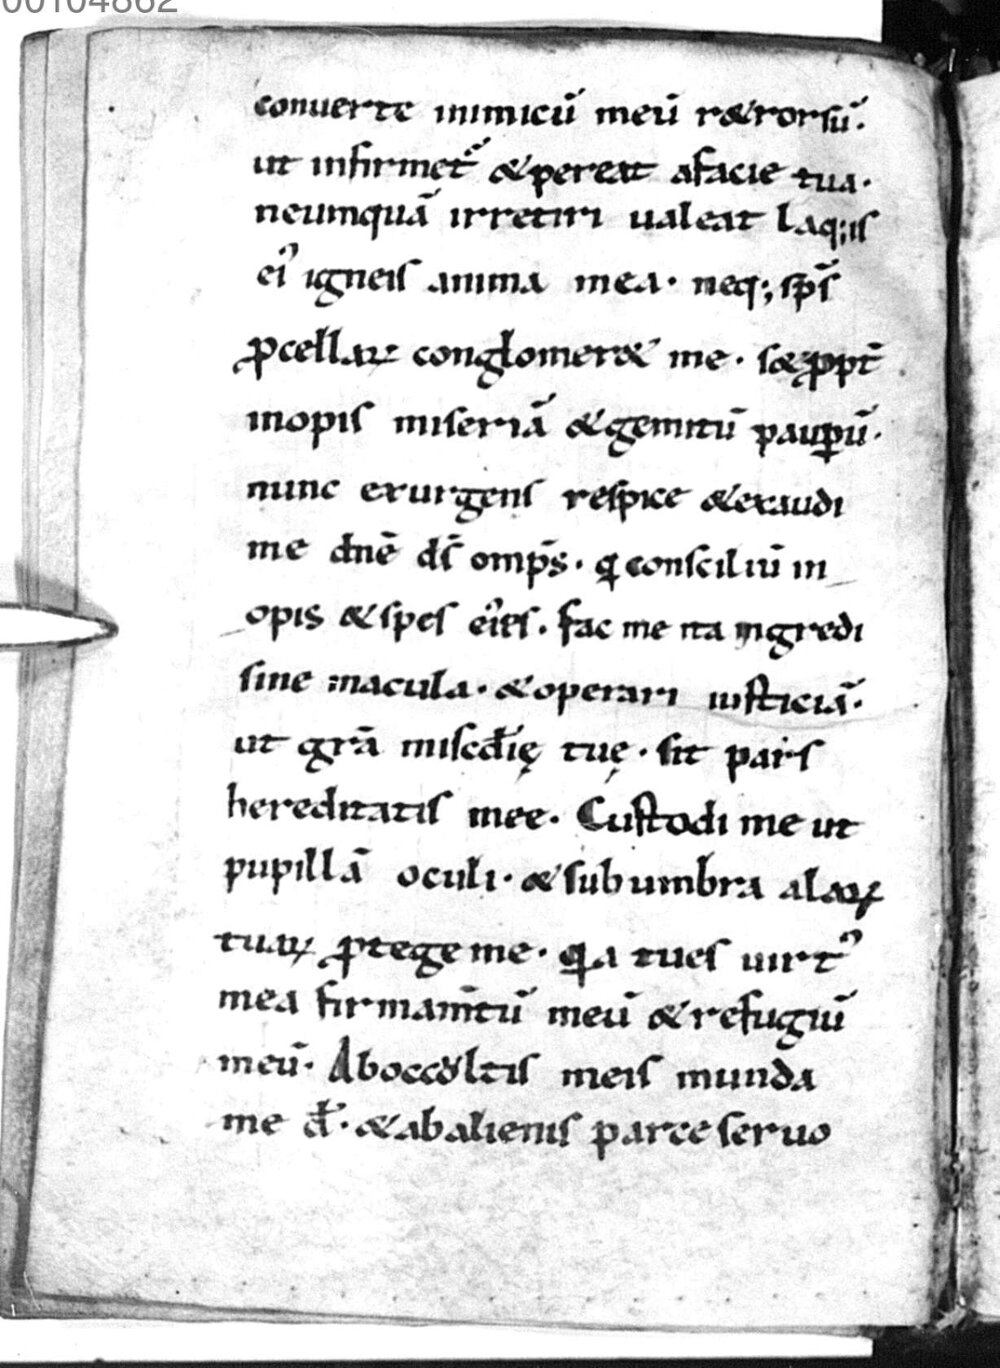 00104862
conuerte inimicū meū r&rorsū.
ut infirmet᷑ &pereat afacie tua.
neumquā irretiri ualeat laq;is
ei᾽ igneis anima mea. neq; sp̄s
ꝓcellaꝝ conglomer& me. s& ꝓpt̄
inopis miseriā &gemitū pauꝑū.
nunc exurgens respice &exaudi
me dnē ds̄ omp̄s. q consciliū in
opis &spes ei᾽ es. fac me ita ingredi
sine macula. &operari iusticiā.
ut grā misc̄dię tuę. sit pars
hereditatis mee. Custodi me ut
pupillā oculi. & sub umbra alaꝝ
tuaꝝ ꝓtege me. qa tu es uirt᾽
mea firmam̄tū meū & refugiū
meū. Aboccultis meis munda
me d̄s. &abalienis parce seruo